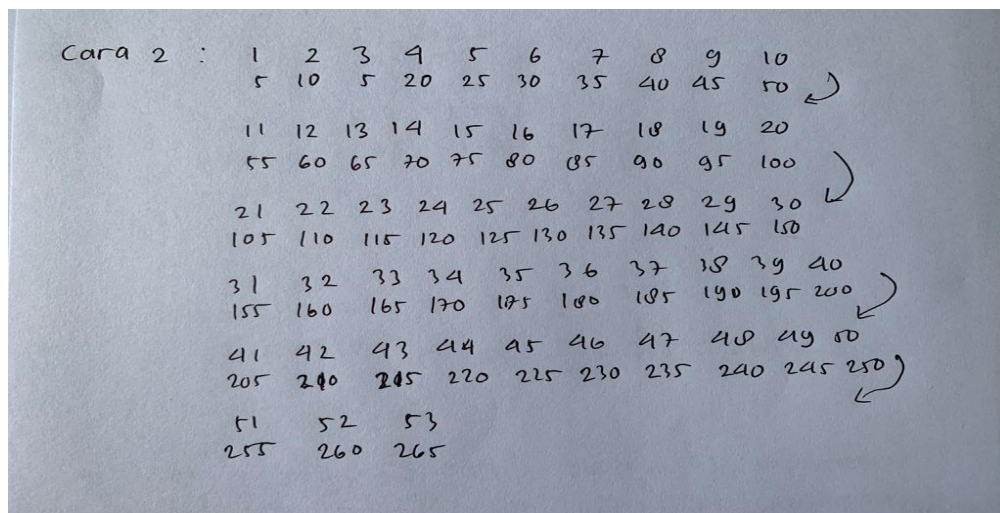 Cara 2 : 1 2 3 4 5 6 7 8 9 10
5 10 5 20 25 30 35 40 45 50
11 12 13 14 15 16 17 18 19 20
55 60 65 70 75 80 85 90 95 100
21 22 23 24 25 26 27 28 29 30
105 110 115 120 125 130 135 140 145 150
31 32 33 34 35 36 37 38 39 40
155 160 165 170 175 180 185 190 195 200
41 42 43 44 45 46 47 48 49 50
205 210 215 220 225 230 235 240 245 250
51 52 53
255 260 265